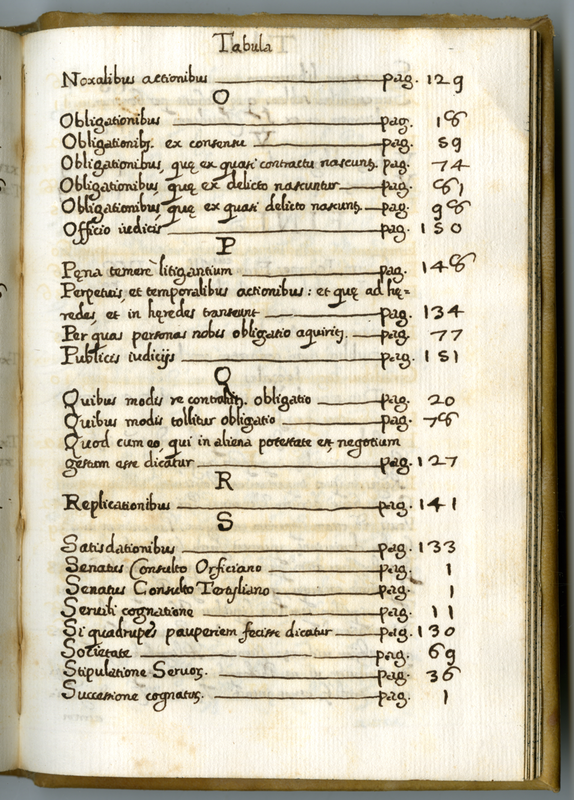 Tabula
Noxalibus actionibus pag. 129
O
Obligationibus pag. 18
Obligationibꝫ. ex consensu pag. 59
Obligationibus, quę ex quasi contractu nascuntꝫ. pag. 74
Obligationibus, quę ex delicto nascuntur pag. 81
Obligationibus, quę ex quasi delicto nascuntꝫ. pag. 98
Officio iudicis pag. 150
P
Pęna temerè litigantium pag. 148
Perpetuis, et temporalibus actionibus: et quę ad hę=
redes, et in hęredes transeunt pag. 134
Per quas personas nobis obligatio aquiritꝫ. pag. 77
Publicis iudicijs pag. 151
Q
Quibus modis re contrahitꝫ. obligatio pag. 20
Quibus modis tollitur obligatio pag. 78
Quod cum eo, qui in aliena potestate est, negotium
gestum esse dicatur pag. 127
R
Replicationibus pag. 141
S
Satisdationibus pag. 133
Senatus Consulto Orficiano pag. 1
Senatus Consulto Tertyliano pag. 1
Servili cognatione pag. 11
Si quadrupes pauperiem fecisse dicatur pag. 130
Societate pag. 69
Stipulatione Servoꝝ. pag. 36
Successione cognatoꝝ. pag. 1